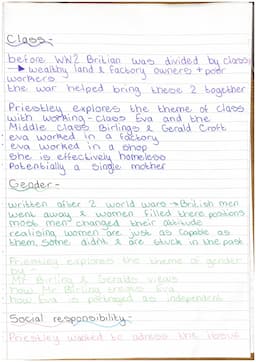 Class:-
before WW2 Britian was divided by class
→ wealthy land & factory owners + poor
workers
the war helped bring these 2 together
Priestley explores the theme of class
with working-class Eva and the
Middle class Birlings & Gerald Croft
eva worked in a factory
eva worked in a shop
she is effectively homeless
Potentially a single mother
Gender:-
written after 2 world wars → British men
went away & women filled there positions
most men changed their attitude
realising women are just as capable as
them, some didnt & are stuck in the past
Priestley explores the theme of gender
by -
Mr Birling & Geralds views
how Mr Birling treats Eva
how Eva is portrayed as independent
Social responsibility:-
Priestley wanted to address the issue